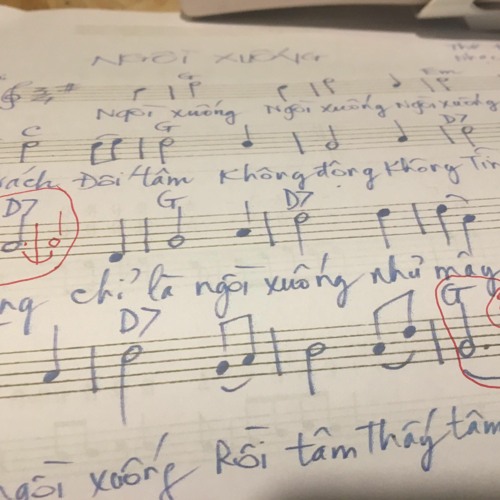 NGỒI XUỐNG
Thơ
Nhạc
G Em
Ngồi xuống Ngồi xuống Ngồi xuống
C G D7
Đôi tâm không động không
D7 G D7
chỉ là ngồi xuống như mây
D7 G
ngồi xuống Rồi tâm thấy tâm